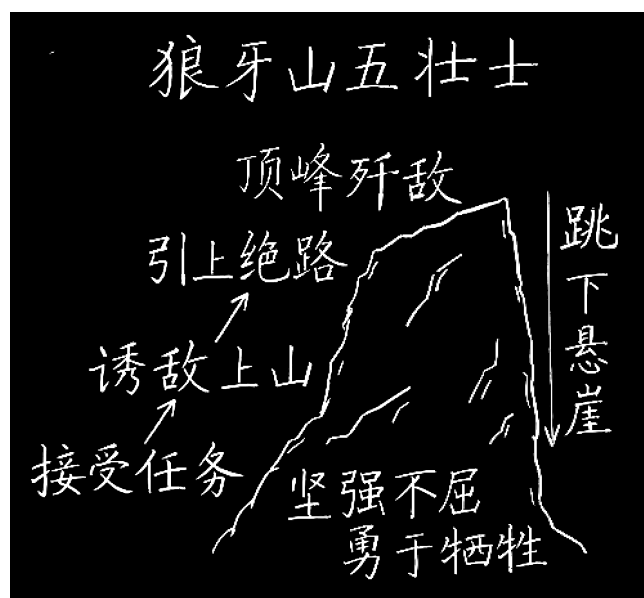 狼牙山五壮士
顶峰歼敌
引上绝路
诱敌上山
接受任务
跳下悬崖
坚强不屈
勇于牺牲